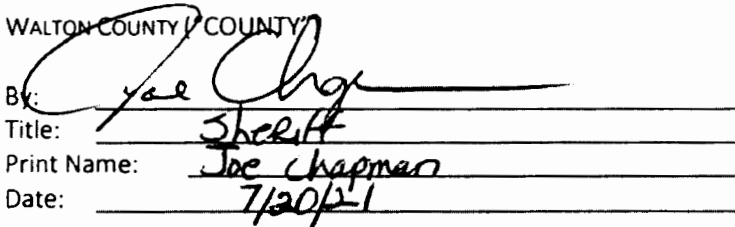 WALTON COUNTY ("COUNTY")
By: Joe Chapman
Title: Sheriff
Print Name: Joe Chapman
Date: 7/20/21